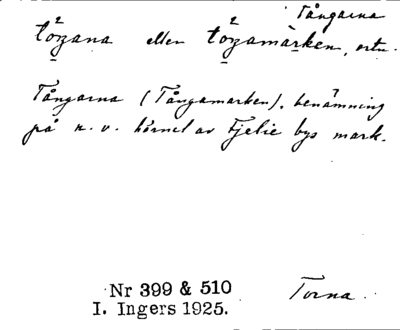 Tångarna
tåŋana eller tåŋamarken, ortn.
Tångarna (Tångamarken), benämning
på n. v. hörnet av Fjelie bys mark.
Nr 399 & 510
Torna.
I. Ingers 1925.